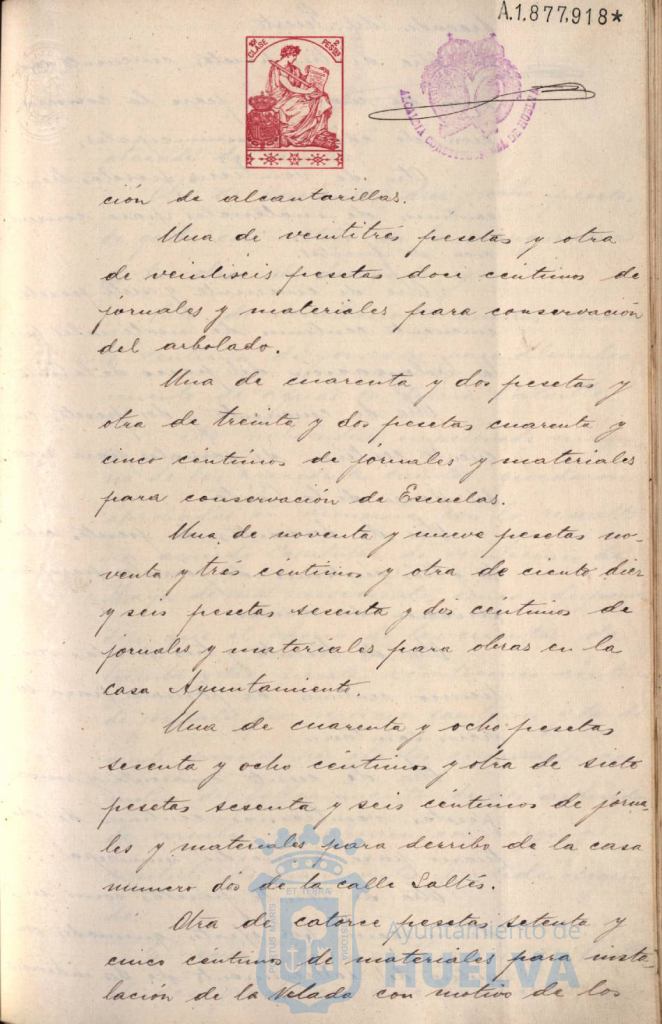 A.1.877.918*
10ª CLASE 2 PESETAS
ALCALDIA CONSTITUCIONAL DE HUELVA
ción de alcantarillas.
Una de veintitrés pesetas y otra
de veintiseis pesetas doce céntimos de
jornales y materiales para conservación
del arbolado.
Una de cuarenta y dos pesetas y
otra de treinta y dos pesetas cuarenta y
cinco céntimos de jornales y materiales
para conservación de Escuelas.
Una de noventa y nueve pesetas no-
venta y trés céntimos y otra de ciento diez
y seis pesetas sesenta y dós céntimos de
jornales y materiales para obras en la
casa Ayuntamiento.
Una de cuarenta y ocho pesetas
sesenta y ocho céntimos y otra de siete
pesetas sesenta y seis céntimos de jorna-
les y materiales para derribo de la casa
numero dós de la calle Saltés.
Otra de catorce pesetas setenta y
cinco céntimos de materiales para insta-
lación de la Velada con motivo de los
PORTUS MARIS ET TERRAE CUSTODIA
Ayuntamiento de
HUELVA